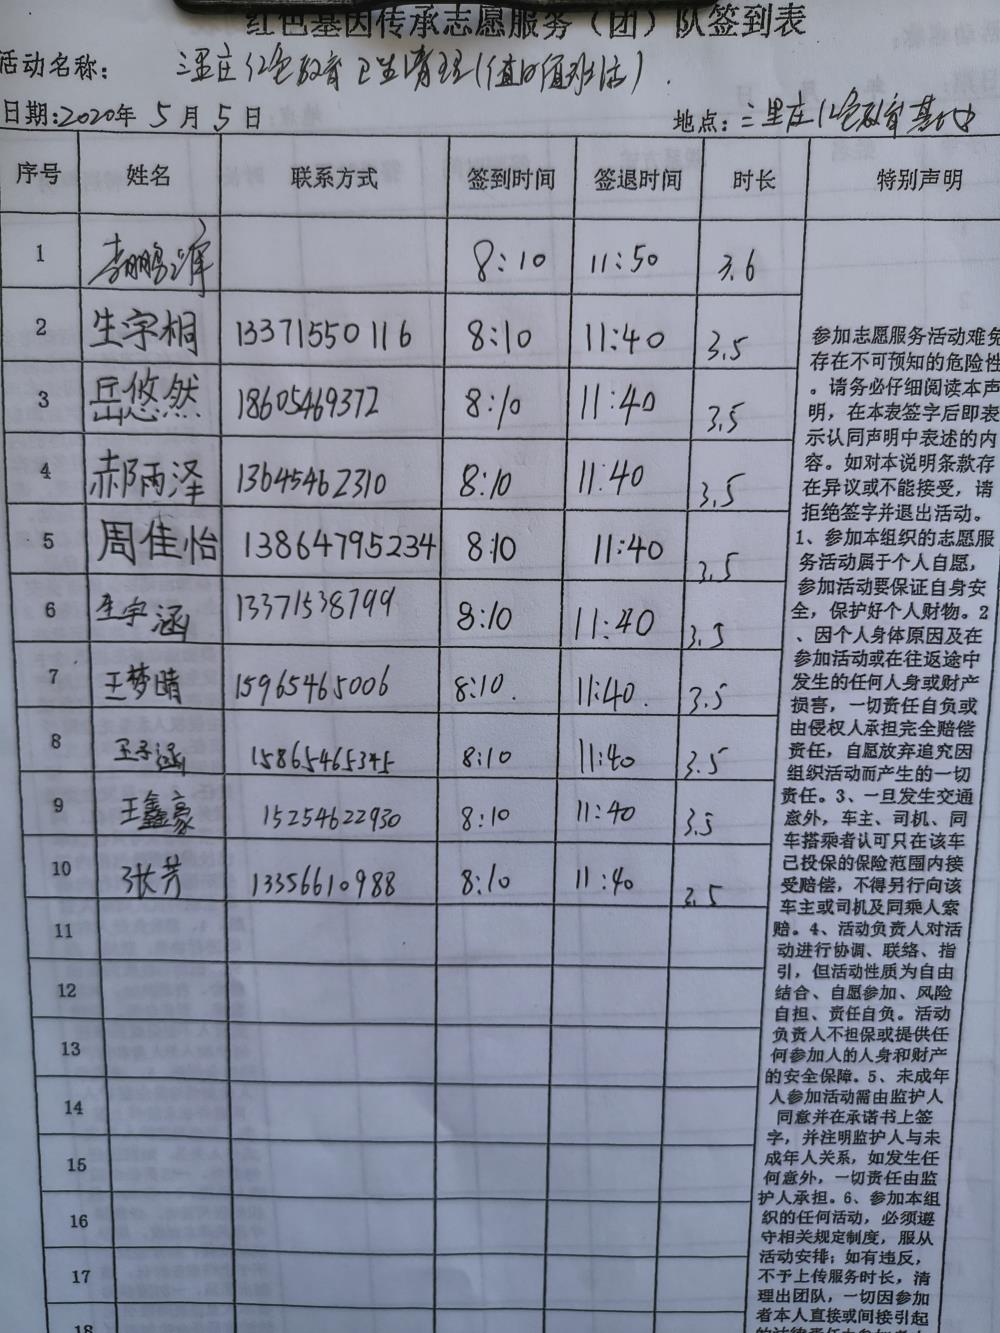 红色基因传承志愿服务(团)队签到表
活动名称: 三里庄红色教育卫生清理(值日值班活)
日期:2020年5月5日 地点:三里庄红色教育基地
序号 姓名 联系方式 签到时间 签退时间 时长 特别声明
1 李鹏 8:10 11:50 3.6
2 生宇桐 13371550116 8:10 11:40 3.5
3 岳悠然 18605469372 8:10 11:40 3.5
4 郝炳泽 13645462310 8:10 11:40 3.5
5 周佳怡 13864795234 8:10 11:40 3.5
6 生宇涵 13371538799 8:10 11:40 3.5
7 王梦晴 15965465006 8:10. 11:40. 3.5
8 王子涵 15865465345 8:10 11:40 3.5
9 王鑫豪 15254622930 8:10 11:40 3.5
10 张芳 13356610988 8:10 11:40 3.5
11
12
13
14
15
16
17
18
参加志愿服务活动难免
存在不可预知的危险性
。请务必仔细阅读本声
明,在本表签字后即表
示认同声明中表述的内
容。如对本说明条款存
在异议或不能接受,请
拒绝签字并退出活动。
1、参加本组织的志愿服
务活动属于个人自愿,
参加活动要保证自身安
全,保护好个人财物。2
、因个人身体原因及在
参加活动或在往返途中
发生的任何人身或财产
损害,一切责任自负或
由侵权人承担完全赔偿
责任,自愿放弃追究因
组织活动而产生的一切
责任。3、一旦发生交通
意外,车主、司机、同
车搭乘者认可只在该车
已投保的保险范围内接
受赔偿,不得另行向该
车主或司机及同乘人索
赔。4、活动负责人对活
动进行协调、联络、指
引,但活动性质为自由
结合、自愿参加、风险
自担、责任自负。活动
负责人不担保或提供任
何参加人的人身和财产
的安全保障。5、未成年
人参加活动需由监护人
同意并在承诺书上签
字,并注明监护人与未
成年人关系,如发生任
何意外,一切责任由监
护人承担。6、参加本组
织的任何活动,必须遵
守相关规定制度,服从
活动安排;如有违反,
不予上传服务时长,清
理出团队,一切因参加
者本人直接或间接引起